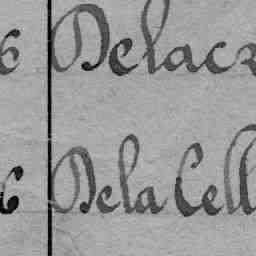 6 Delacr
6 De la Cell